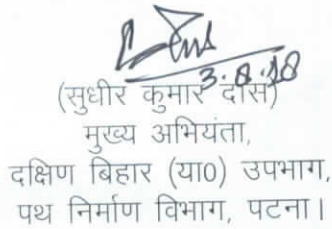 3.8.18
(सुधीर कुमार दास)
मुख्य अभियंता,
दक्षिण बिहार (या०) उपभाग,
पथ निर्माण विभाग, पटना।